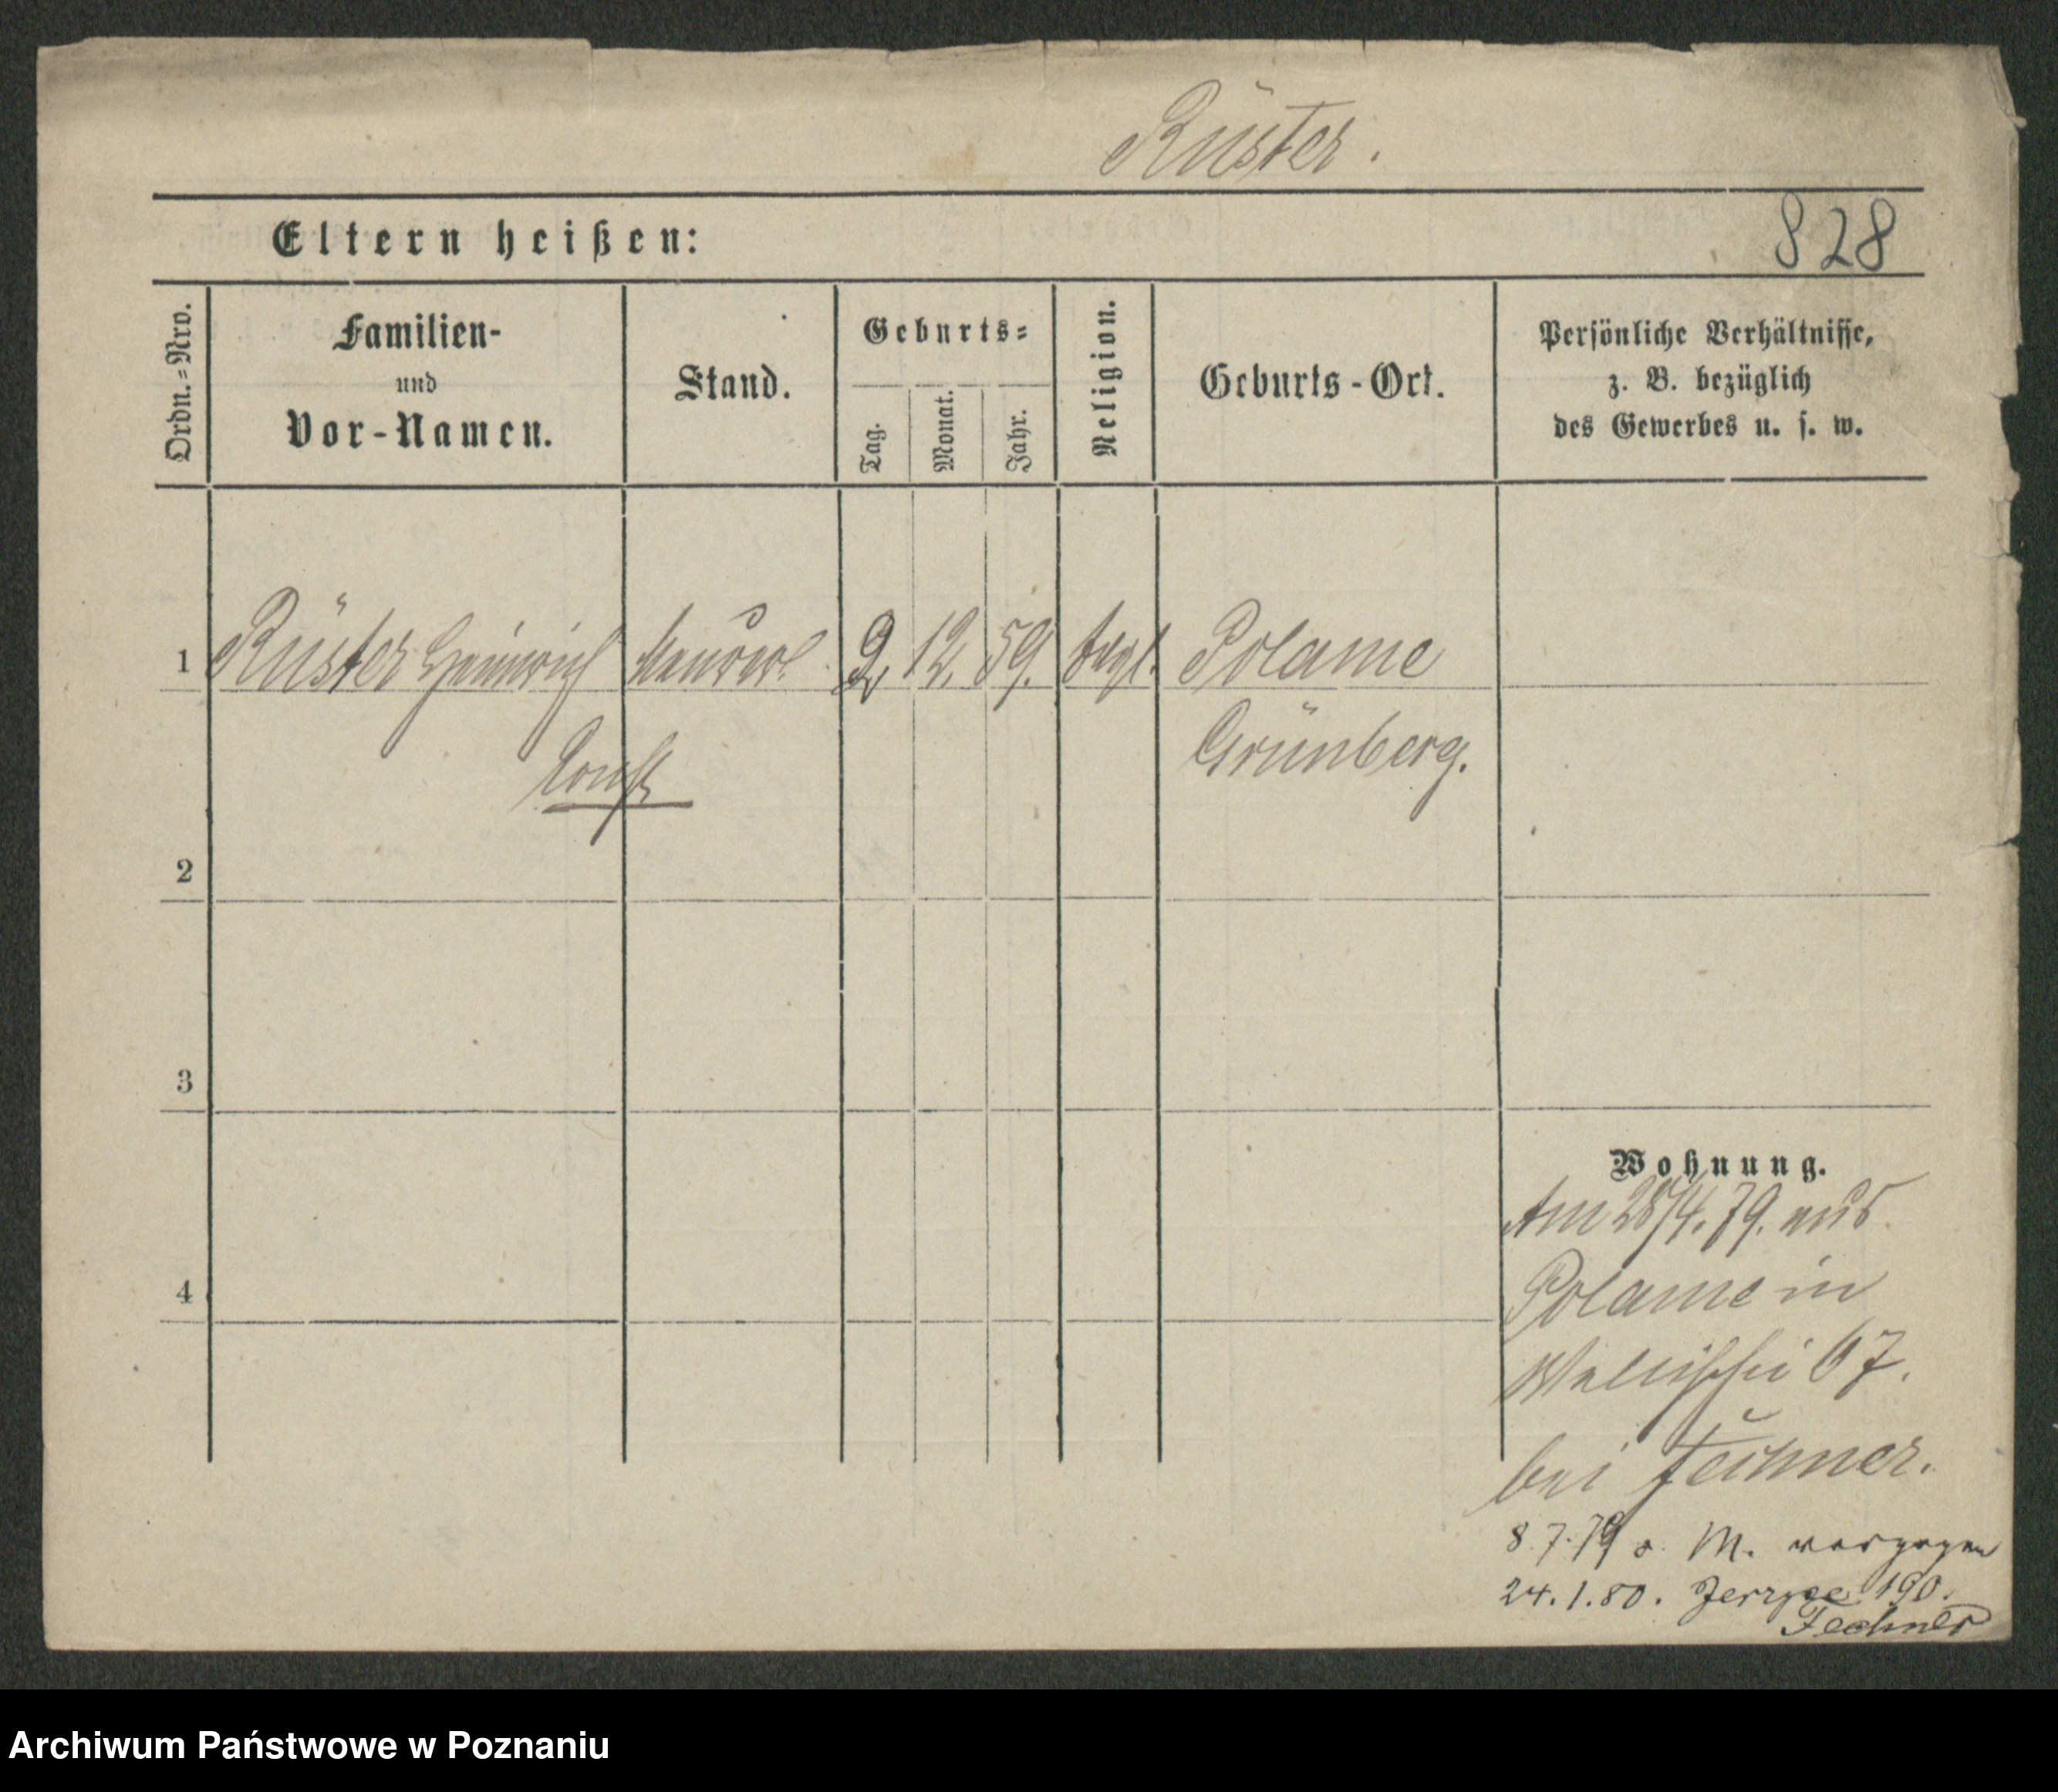 Rüster.
Eltern heißen:
828
Ordn.=Nro.
Familien-
und
Vor-Namen.
Stand.
Geburts=
Tag.
Monat.
Jahr.
Religion.
Geburts-Ort.
Persönliche Verhältnisse,
z. B. bezüglich
des Gewerbes u. s. w.
1 Rüster Heinrich 2. 12. 59. Polame
Grünberg.
2
3
4
Wohnung.
Am 28/4. 79. aus
Polame in
Wallischei 67.
bei Fechner.
8.7.79 n. M. verzogen
24.1.80. Jerzyce 190.
Fechner
Archiwum Państwowe w Poznaniu